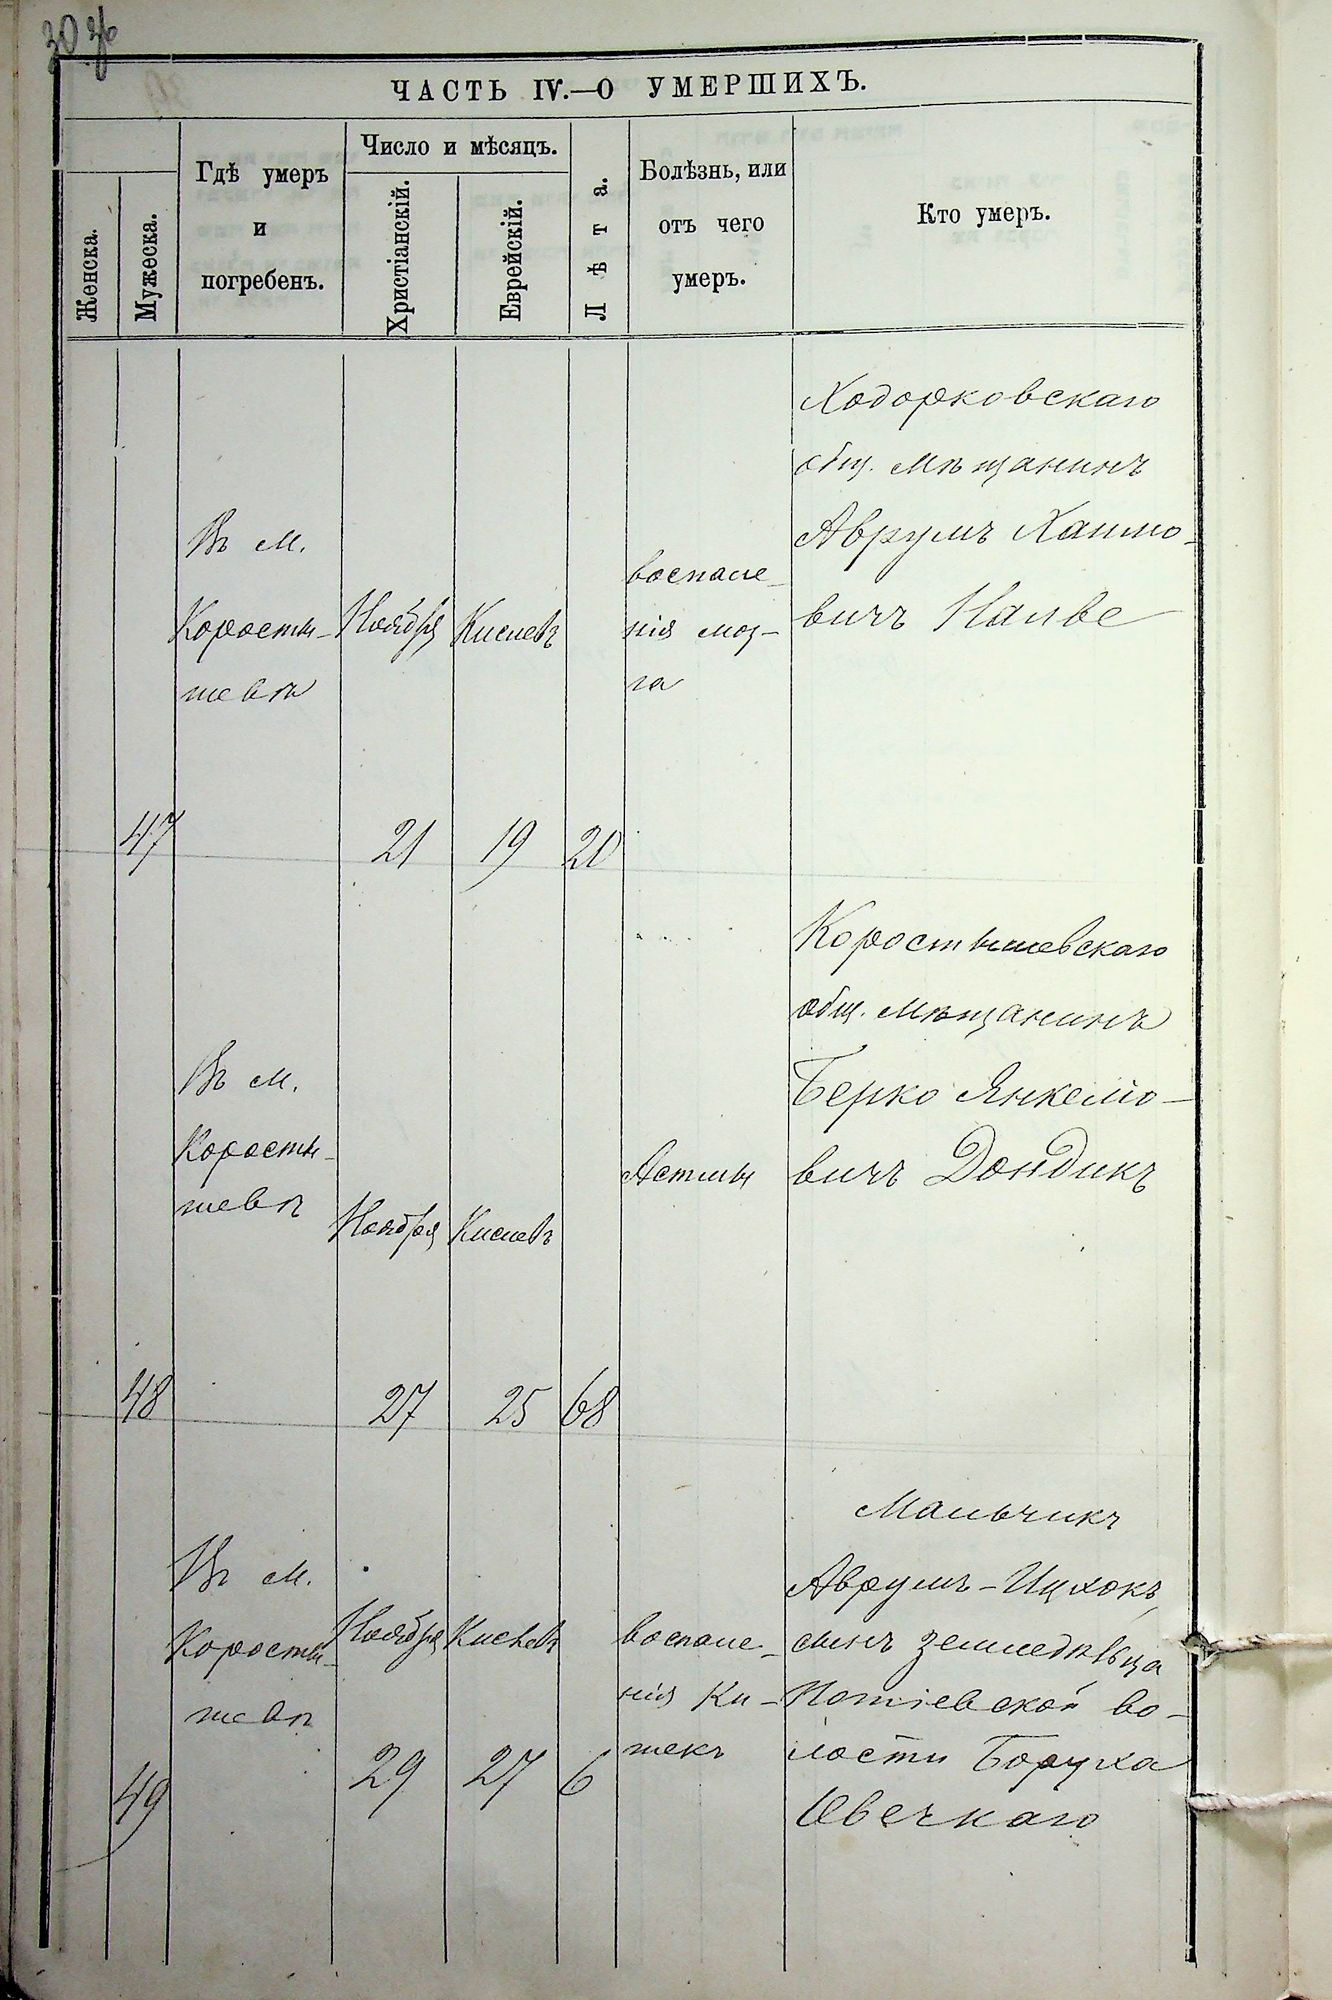 30 36
ЧАСТЬ IV.—О УМЕРШИХЪ.
Женска.
Мужеска.
Гдѣ умеръ
и
погребенъ.
Число и мѣсяцъ.
Христіанскій.
Еврейскій.
Лѣта.
Болѣзнь, или
отъ чего
умеръ.
Кто умеръ.
47
Въ м.
Коросты-
шевѣ
Ноября
21
Кислевъ
19
20
воспале-
нія моз-
га
Ходорковскаго
общ. мѣщанинъ
Аврумъ Хаимо-
вичъ
48
Въ м.
Коросты-
шевѣ
Ноября
27
Кислевъ
25
68
Астмы
Коростышевскаго
общ. мѣщанинъ
Берко Янкело-
вичъ Дондикъ
49
Въ м.
Коросты-
шевѣ
Ноября
29
Кислевъ
27
6
воспале-
нія Ки-
шекъ
Мальчикъ
Аврумъ-Ицхокъ,
сынъ земледѣльца
Потіевской во-
лости Боруха
Овечкаго